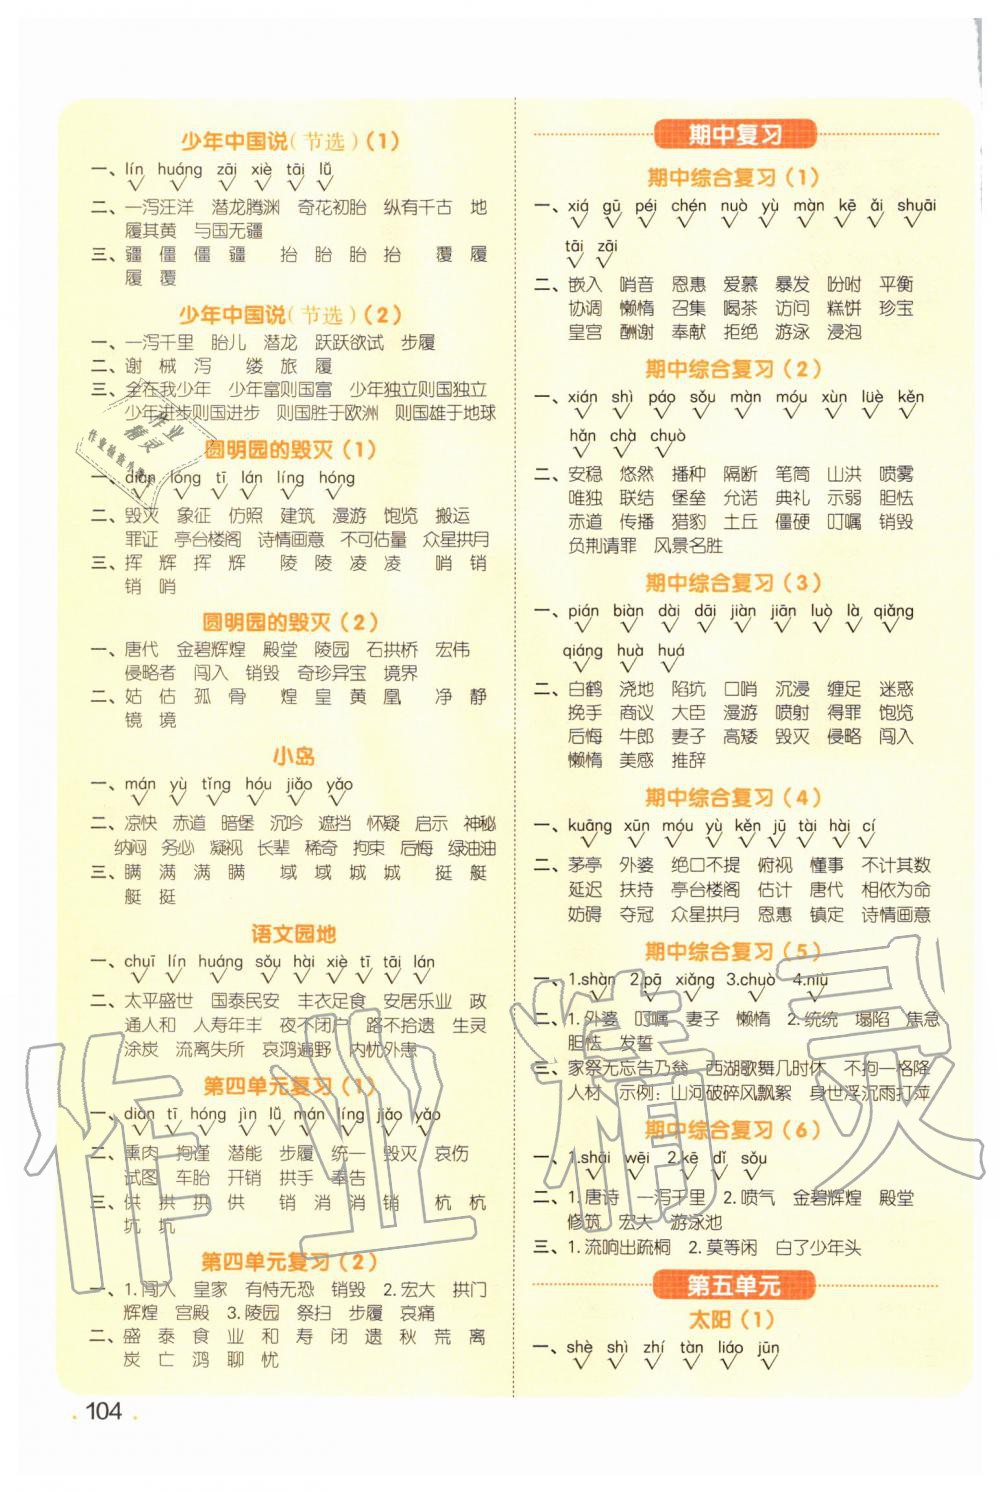 少年中国说(节选)(1)
一、lín huáng zāi xiè tāi lǚ
二、一泻汪洋 潜龙腾渊 奇花初胎 纵有千古 地
履其黄 与国无疆
三、疆 僵 僵 疆 抬 胎 胎 抬 覆 履
履 覆
少年中国说(节选)(2)
一、一泻千里 胎儿 潜龙 跃跃欲试 步履
二、谢 械 泻 缕 旅 履
三、全在我少年 少年富则国富 少年独立则国独立
少年进步则国进步 则国胜于欧洲 则国雄于地球
圆明园的毁灭(1)
一、diàn lóng tī lán líng hóng
二、毁灭 象征 仿照 建筑 漫游 饱览 搬运
罪证 亭台楼阁 诗情画意 不可估量 众星拱月
三、挥 辉 挥 辉 陵 陵 凌 凌 哨 销
销 哨
圆明园的毁灭(2)
一、唐代 金碧辉煌 殿堂 陵园 石拱桥 宏伟
侵略者 闯入 销毁 奇珍异宝 境界
二、姑 估 孤 骨 煌 皇 黄 凰 净 静
镜 境
小岛
一、mán yù tǐng hóu jiǎo yǎo
二、凉快 赤道 暗堡 沉吟 遮挡 怀疑 启示 神秘
纳闷 务必 凝视 长辈 稀奇 拘束 后悔 绿油油
三、瞒 满 满 瞒 域 域 城 城 挺 艇
艇 挺
语文园地
一、chuī lín huáng sǒu hài xiè tī tāi lán
二、太平盛世 国泰民安 丰衣足食 安居乐业 政
通人和 人寿年丰 夜不闭户 路不拾遗 生灵
涂炭 流离失所 哀鸿遍野 内忧外患
第四单元复习(1)
一、diàn tī hóng jìn lǚ mán líng jiǎo yǎo
二、熏肉 拘谨 潜能 步履 统一 毁灭 哀伤
试图 车胎 开销 拱手 奉告
三、供 拱 拱 供 销 消 消 销 杭 杭
坑 坑
第四单元复习(2)
一、1.闯入 皇家 有恃无恐 销毁 2.宏大 拱门
辉煌 宫殿 3.陵园 祭扫 步履 哀痛
二、盛 泰 食 业 和 寿 闭 遗 秋 荒 离
炭 亡 鸿 聊 忧
104
期中复习
期中综合复习(1)
一、xiá gū péi chén nuò yù màn kē ǎi shuāi
tāi zāi
二、嵌入 哨音 恩惠 爱慕 暴发 吩咐 平衡
协调 懒惰 召集 喝茶 访问 糕饼 珍宝
皇宫 酬谢 奉献 拒绝 游泳 浸泡
期中综合复习(2)
一、xián shì páo sǒu màn móu xùn luè kěn
hǎn chà chuò
二、安稳 悠然 播种 隔断 笔筒 山洪 喷雾
唯独 联结 堡垒 允诺 典礼 示弱 胆怯
赤道 传播 猎豹 土丘 僵硬 叮嘱 销毁
负荆请罪 风景名胜
期中综合复习(3)
一、pián biàn dài dāi jiàn jiān luò là qiǎng
qiáng huà huá
二、白鹤 浇地 陷坑 口哨 沉浸 缠足 迷惑
挽手 商议 大臣 漫游 喷射 得罪 饱览
后悔 牛郎 妻子 高矮 毁灭 侵略 闯入
懒惰 美感 推辞
期中综合复习(4)
一、kuāng xūn móu yù kěn jū tài hài cí
二、茅亭 外婆 绝口不提 俯视 懂事 不计其数
延迟 扶持 亭台楼阁 估计 唐代 相依为命
妨碍 夺冠 众星拱月 恩惠 镇定 诗情画意
期中综合复习(5)
一、1.shàn 2.pā xiǎng 3.chuò 4.niù
二、1.外婆 叮嘱 妻子 懒惰 2.统统 塌陷 焦急
胆怯 发誓
三、家祭无忘告乃翁 西湖歌舞几时休 不拘一格降
人材 示例:山河破碎风飘絮 身世浮沉雨打萍
期中综合复习(6)
一、1.shāi wēi 2.kē dǐ sǒu
二、1.唐诗 一泻千里 2.喷气 金碧辉煌 殿堂
修筑 宏大 游泳池
三、1.流响出疏桐 2.莫等闲 白了少年头
第五单元
太阳(1)
一、shè shì zhí tàn liáo jūn